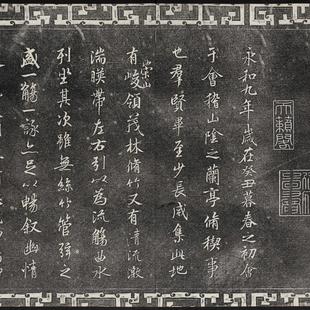 永和九年歲在癸丑暮春之初會
于會稽山陰之蘭亭脩稧事
也羣賢畢至少長咸集此地
有崇山峻領茂林脩竹又有清流激
湍暎帶左右引以為流觴曲水
列坐其次雖無絲竹管弦之
盛一觴一詠亦足以暢叙幽情
天籟閣